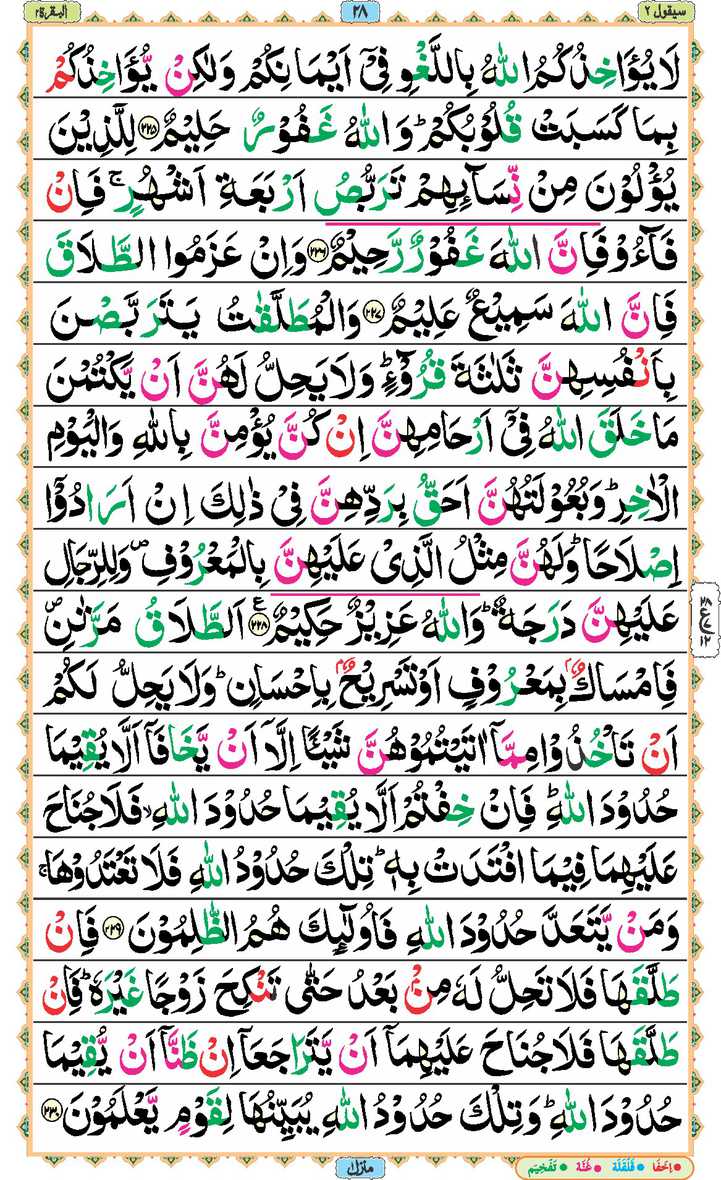 سيقول ٢ ٢٨ البقرة ٢
لَا يُؤَاخِذُكُمُ اللّٰهُ بِاللَّغْوِ فِىْٓ اَيْمَانِكُمْ وَلٰكِنْ يُّؤَاخِذُكُمْ
بِمَا كَسَبَتْ قُلُوْبُكُمْ ؕ وَاللّٰهُ غَفُوْرٌ حَلِيْمٌ ﴿٢٢٥﴾ لِلَّذِيْنَ
يُؤْلُوْنَ مِنْ نِّسَآئِهِمْ تَرَبُّصُ اَرْبَعَةِ اَشْهُرٍ ۚ فَاِنْ
فَآءُوْ فَاِنَّ اللّٰهَ غَفُوْرٌ رَّحِيْمٌ ﴿٢٢٦﴾ وَاِنْ عَزَمُوا الطَّلَاقَ
فَاِنَّ اللّٰهَ سَمِيْعٌ عَلِيْمٌ ﴿٢٢٧﴾ وَالْمُطَلَّقٰتُ يَتَرَبَّصْنَ
بِاَنْفُسِهِنَّ ثَلٰثَةَ قُرُوْٓءٍ ؕ وَلَا يَحِلُّ لَهُنَّ اَنْ يَّكْتُمْنَ
مَا خَلَقَ اللّٰهُ فِىْٓ اَرْحَامِهِنَّ اِنْ كُنَّ يُؤْمِنَّ بِاللّٰهِ وَالْيَوْمِ
الْاٰخِرِ ؕ وَبُعُوْلَتُهُنَّ اَحَقُّ بِرَدِّهِنَّ فِىْ ذٰلِكَ اِنْ اَرَادُوْٓا
اِصْلَاحًا ؕ وَلَهُنَّ مِثْلُ الَّذِىْ عَلَيْهِنَّ بِالْمَعْرُوْفِ ۪ وَلِلرِّجَالِ
عَلَيْهِنَّ دَرَجَةٌ ؕ وَاللّٰهُ عَزِيْزٌ حَكِيْمٌ ﴿٢٢٨﴾ ع اَلطَّلَاقُ مَرَّتٰنِ ۪
فَاِمْسَاكٌۢ بِمَعْرُوْفٍ اَوْ تَسْرِيْحٌۢ بِاِحْسَانٍ ؕ وَلَا يَحِلُّ لَكُمْ
اَنْ تَاْخُذُوْا مِمَّآ اٰتَيْتُمُوْهُنَّ شَيْئًا اِلَّآ اَنْ يَّخَافَآ اَلَّا يُقِيْمَا
حُدُوْدَ اللّٰهِ ؕ فَاِنْ خِفْتُمْ اَلَّا يُقِيْمَا حُدُوْدَ اللّٰهِ ۙ فَلَا جُنَاحَ
عَلَيْهِمَا فِيْمَا افْتَدَتْ بِهٖ ؕ تِلْكَ حُدُوْدُ اللّٰهِ فَلَا تَعْتَدُوْهَا ۚ
وَمَنْ يَّتَعَدَّ حُدُوْدَ اللّٰهِ فَاُولٰٓئِكَ هُمُ الظّٰلِمُوْنَ ﴿٢٢٩﴾ فَاِنْ
طَلَّقَهَا فَلَا تَحِلُّ لَهٗ مِنْۢ بَعْدُ حَتّٰى تَنْكِحَ زَوْجًا غَيْرَهٗ ؕ فَاِنْ
طَلَّقَهَا فَلَا جُنَاحَ عَلَيْهِمَآ اَنْ يَّتَرَاجَعَآ اِنْ ظَنَّآ اَنْ يُّقِيْمَا
حُدُوْدَ اللّٰهِ ؕ وَتِلْكَ حُدُوْدُ اللّٰهِ يُبَيِّنُهَا لِقَوْمٍ يَّعْلَمُوْنَ ﴿٢٣٠﴾
اِخفَا قَلقَلَة غُنَّة تَفخِيم